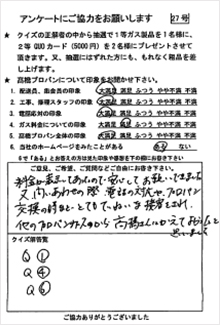 アンケートにご協力をお願いします 27号
★ クイズの正解者の中から抽選で1等ガス製品を1名様に、
2等QUOカード(5000円)を2名様にプレゼントさせて
頂きます。又、抽選にはずれた方にも、もれなく粗品を差
し上げます。
★ 高松プロパンについて印象をお聞かせ下さい。
1. 配送員、集金員の印象 大満足 満足 ふつう やや不満 不満
2. 工事、修理スタッフの印象 大満足 満足 ふつう やや不満 不満
3. 電話応対の印象 大満足 満足 ふつう やや不満 不満
4. ガス料金についての印象 大満足 満足 ふつう やや不満 不満
5. 高松プロパン全体の印象 大満足 満足 ふつう やや不満 不満
6. 当社のホームページをみたことがある ない
6で「ある」とお答えの方は見た印象や感想を下の欄にお書き下さい
ご意見、ご希望、ご質問などご自由にお書き下さい。
料金が
又、問いあわせの際、電話の対応や、プロパン
交換の時もとてもていねいな接客をされ、
他のプロパンガスやから高松さんにかえて
思いました
クイズ解答覧
Q ①
Q ④
Q ⑥
ご協力ありがとうございました